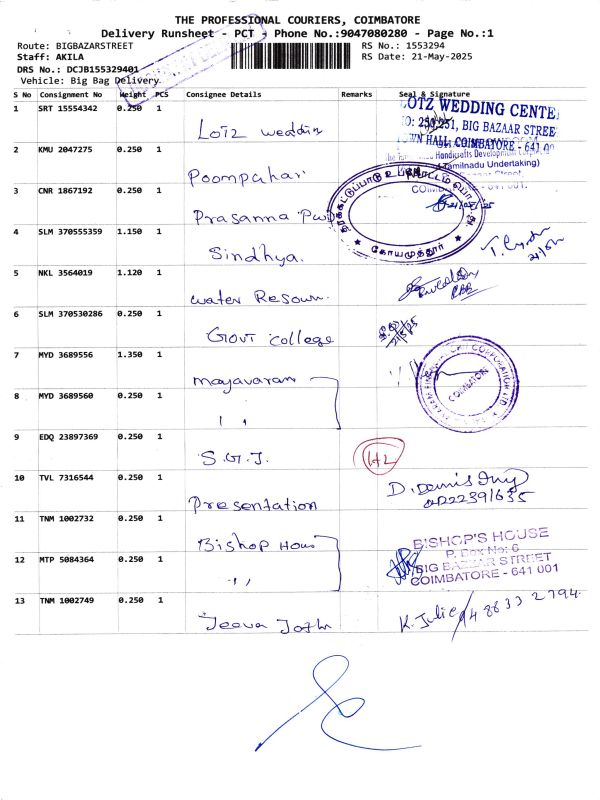 THE PROFESSIONAL COURIERS, COIMBATORE
Delivery Runsheet - PCT - Phone No.:9047080280 - Page No.:1
Route: BIGBAZARSTREET
RS No.: 1553294
Staff: AKILA
RS Date: 21-May-2025
DRS No.: DCJB155329401
Vehicle: Big Bag Delivery
S No Consignment No Weight PCS Consignee Details Remarks Seal & Signature
1 SRT 15554342 0.250 1 Lotz weddin
LOTZ WEDDING CENTE
NO: 250,251, BIG BAZAAR STREE
OWN HALL, COIMBATORE - 641 00
2 KMU 2047275 0.250 1 Poompuhar
Handicrafts Development
Tamilnadu Undertaking)
Street,
COIMB - 641 001.
3 CNR 1867192 0.250 1 Prasanna
21/05/25
கோயமுத்தூர்
4 SLM 370555359 1.150 1 Sindhya.
5 NKL 3564019 1.120 1 Water Resour.
6 SLM 370530286 0.250 1 Govt college
21/5/25
7 MYD 3689556 1.350 1 mayavaram
COIMBATORE
8 MYD 3689560 0.250 1 , ,
9 EDQ 23897369 0.250 1 S.G.J.
10 TVL 7316544 0.250 1 Presentation
11 TNM 1002732 0.250 1 Bishop Hous
BISHOP'S HOUSE
P. Box No: 6
12 MTP 5084364 0.250 1 , ,
BIG BAZAAR STREET
COIMBATORE - 641 001
13 TNM 1002749 0.250 1 Jeeva Jothi
K. Julie 948633 2794